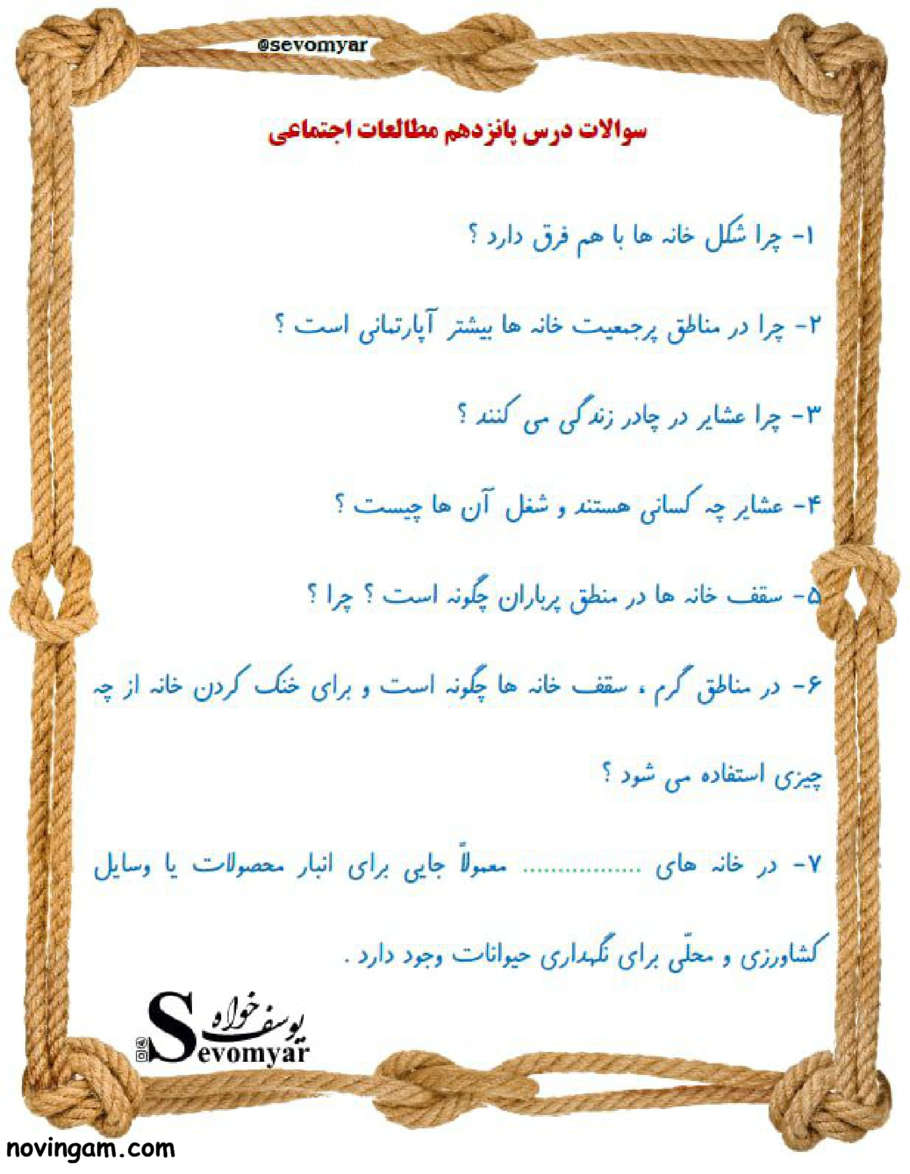 @sevomyar
سوالات درس پانزدهم مطالعات اجتماعی
۱- چرا شکل خانه ها با هم فرق دارد ؟
۲- چرا در مناطق پرجمعیت خانه ها بیشتر آپارتمانی است ؟
۳- چرا عشایر در چادر زندگی می کنند ؟
۴- عشایر چه کسانی هستند و شغل آن ها چیست ؟
۵- سقف خانه ها در منطق پرباران چگونه است ؟ چرا ؟
۶- در مناطق گرم ، سقف خانه ها چگونه است و برای خنک کردن خانه از چه
چیزی استفاده می شود ؟
۷- در خانه های ................. معمولاً جایی برای انبار محصولات یا وسایل
کشاورزی و محلّی برای نگهداری حیوانات وجود دارد .
یوسف خواه
Sevomyar
novingam.com